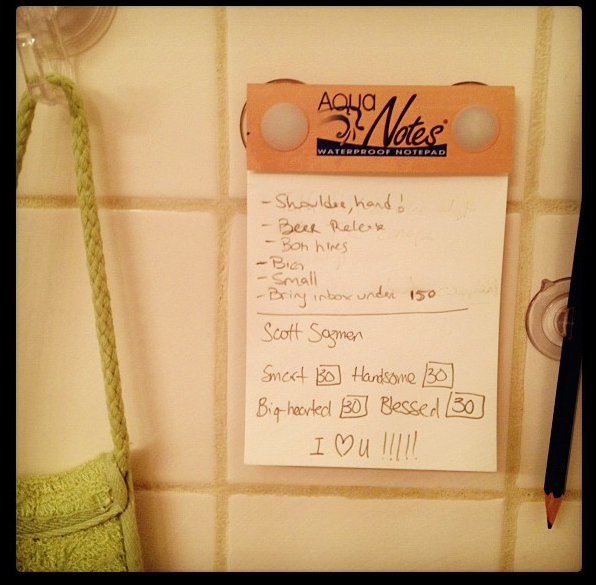 Aqua
Notes®
WATERPROOF NOTEPAD
- Shoulder, hand!
- Beer Release
- Bon hires
- Big
- Small
- Bring inbox under 150
Scott Sozmen
Smart 30 Handsome 30
Big-hearted 30 Blessed 30
I ♡ U !!!!!